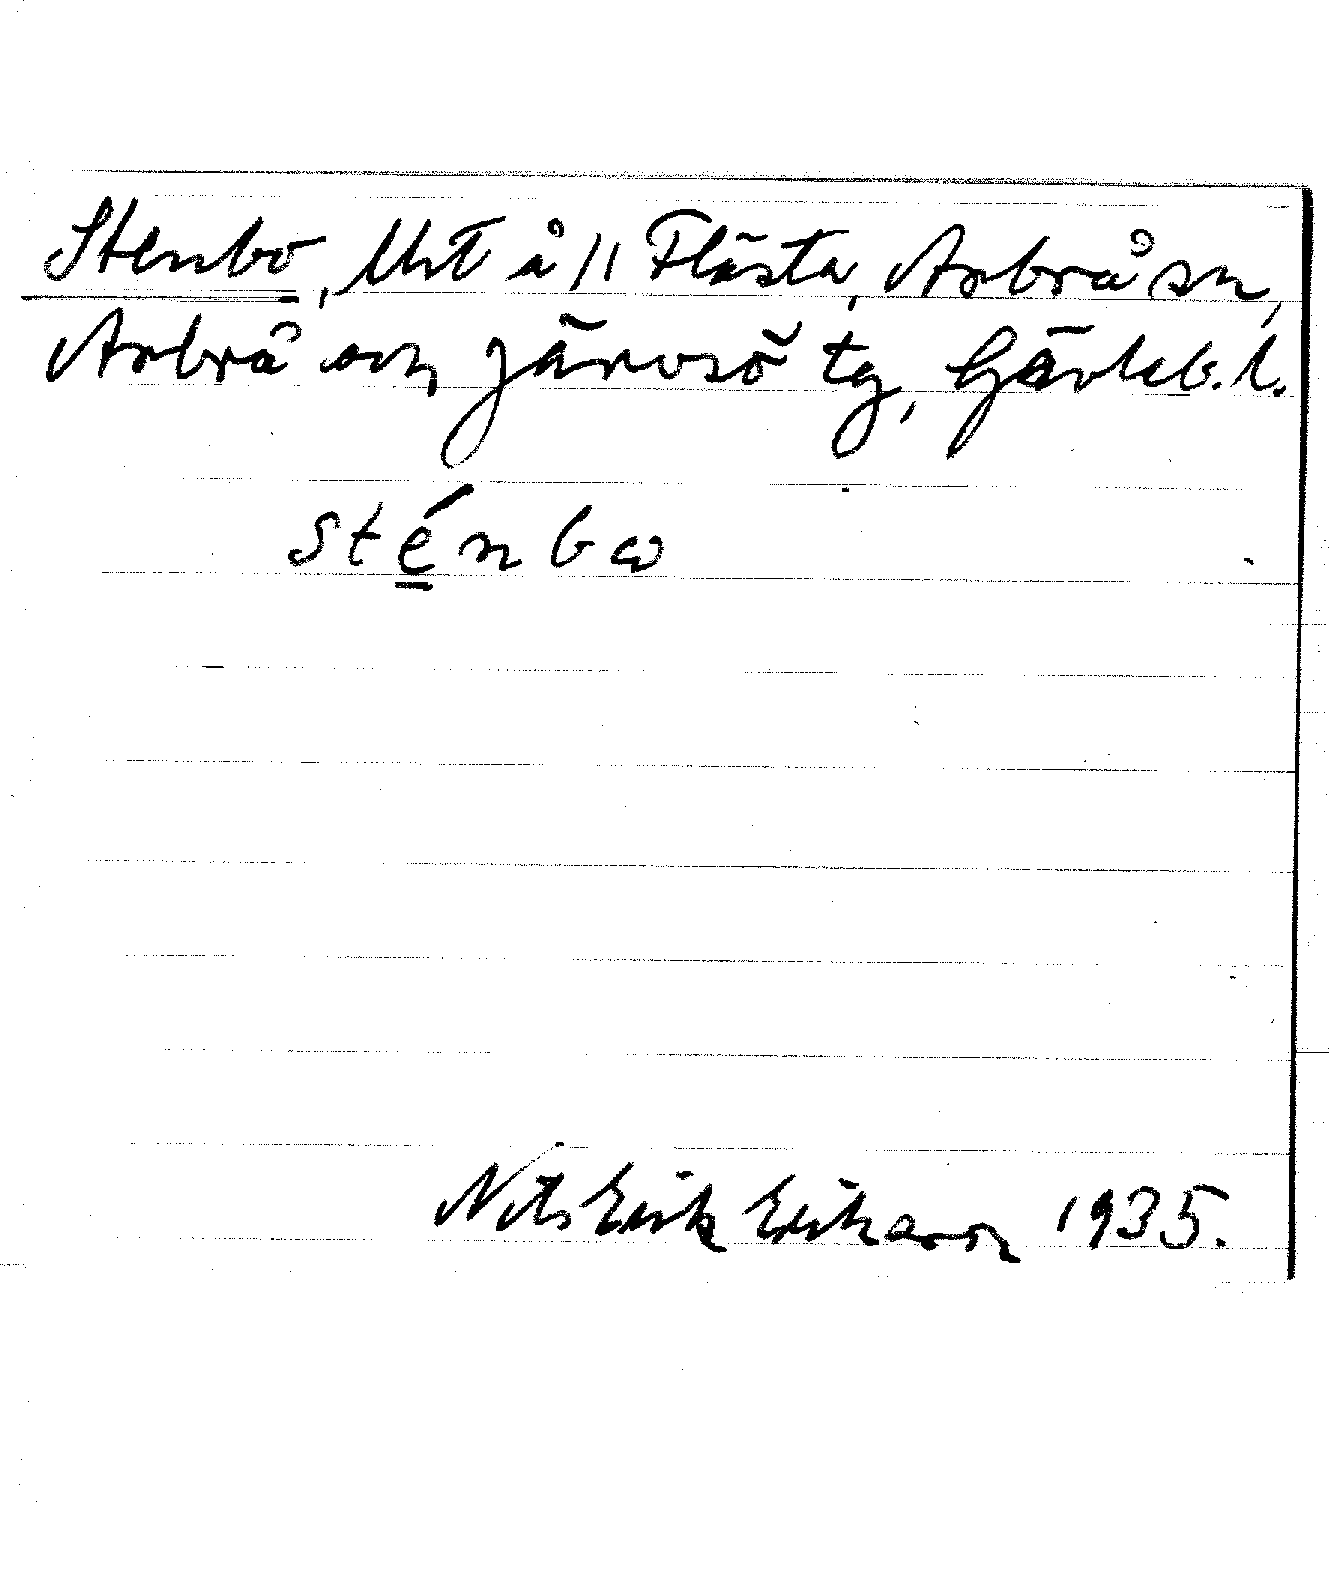 Stenbo, Utst å 11 Flästa, Arbrå sn,
Arbrå och Järvsö tg, Gävleb. l.
sténbω
Nils Erik Erikson 1935.